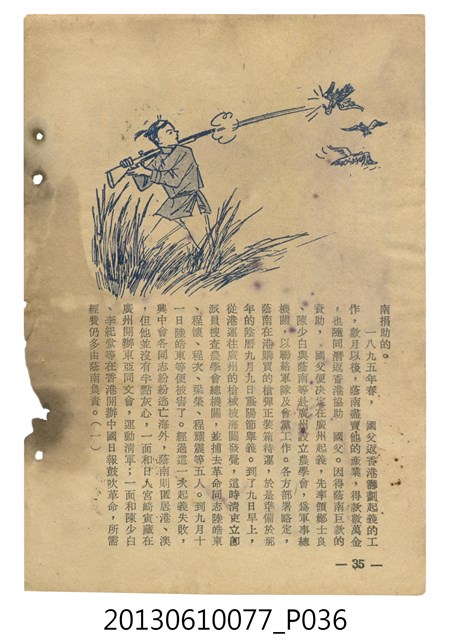 南捐助的。
一八九五年春，　國父返香港籌劃起義的工
作，數月以後，蔭南盡賣他的產業，得款數萬金
，也隨同潛返香港協助　國父。因得蔭南巨款的
資助，　國父便決定在廣州起義，先率領鄭士良
、陳少白與蔭南等赴廣州設立農學會，爲軍事總
機關，以聯絡軍隊及會黨工作。各方部署略定，
蔭南在港購買的槍彈正裝箱待運，於是準備於那
年的陰曆九月九日重陽節舉義。到了九日早上，
從港運往廣州的槍械被海關發覺，這時清吏立卽
派員搜查農學會總機關，並捕去革命同志陸皓東
、程懷、程次、程榮、程耀宸等五人。到九月十
一日陸皓東等便被害了。經過這一次起義失敗，
興中會各同志紛紛逃亡海外，蔭南則匿居港、澳
，但他並沒有半點灰心，一面和日人宮崎寅藏在
廣州開辦東亞同文會，運動清軍；一面和陳少白
、李紀堂等在香港開辦中國日報鼓吹革命，所需
經費仍多由蔭南負責。（一）
— 35 —
20130610077_P036